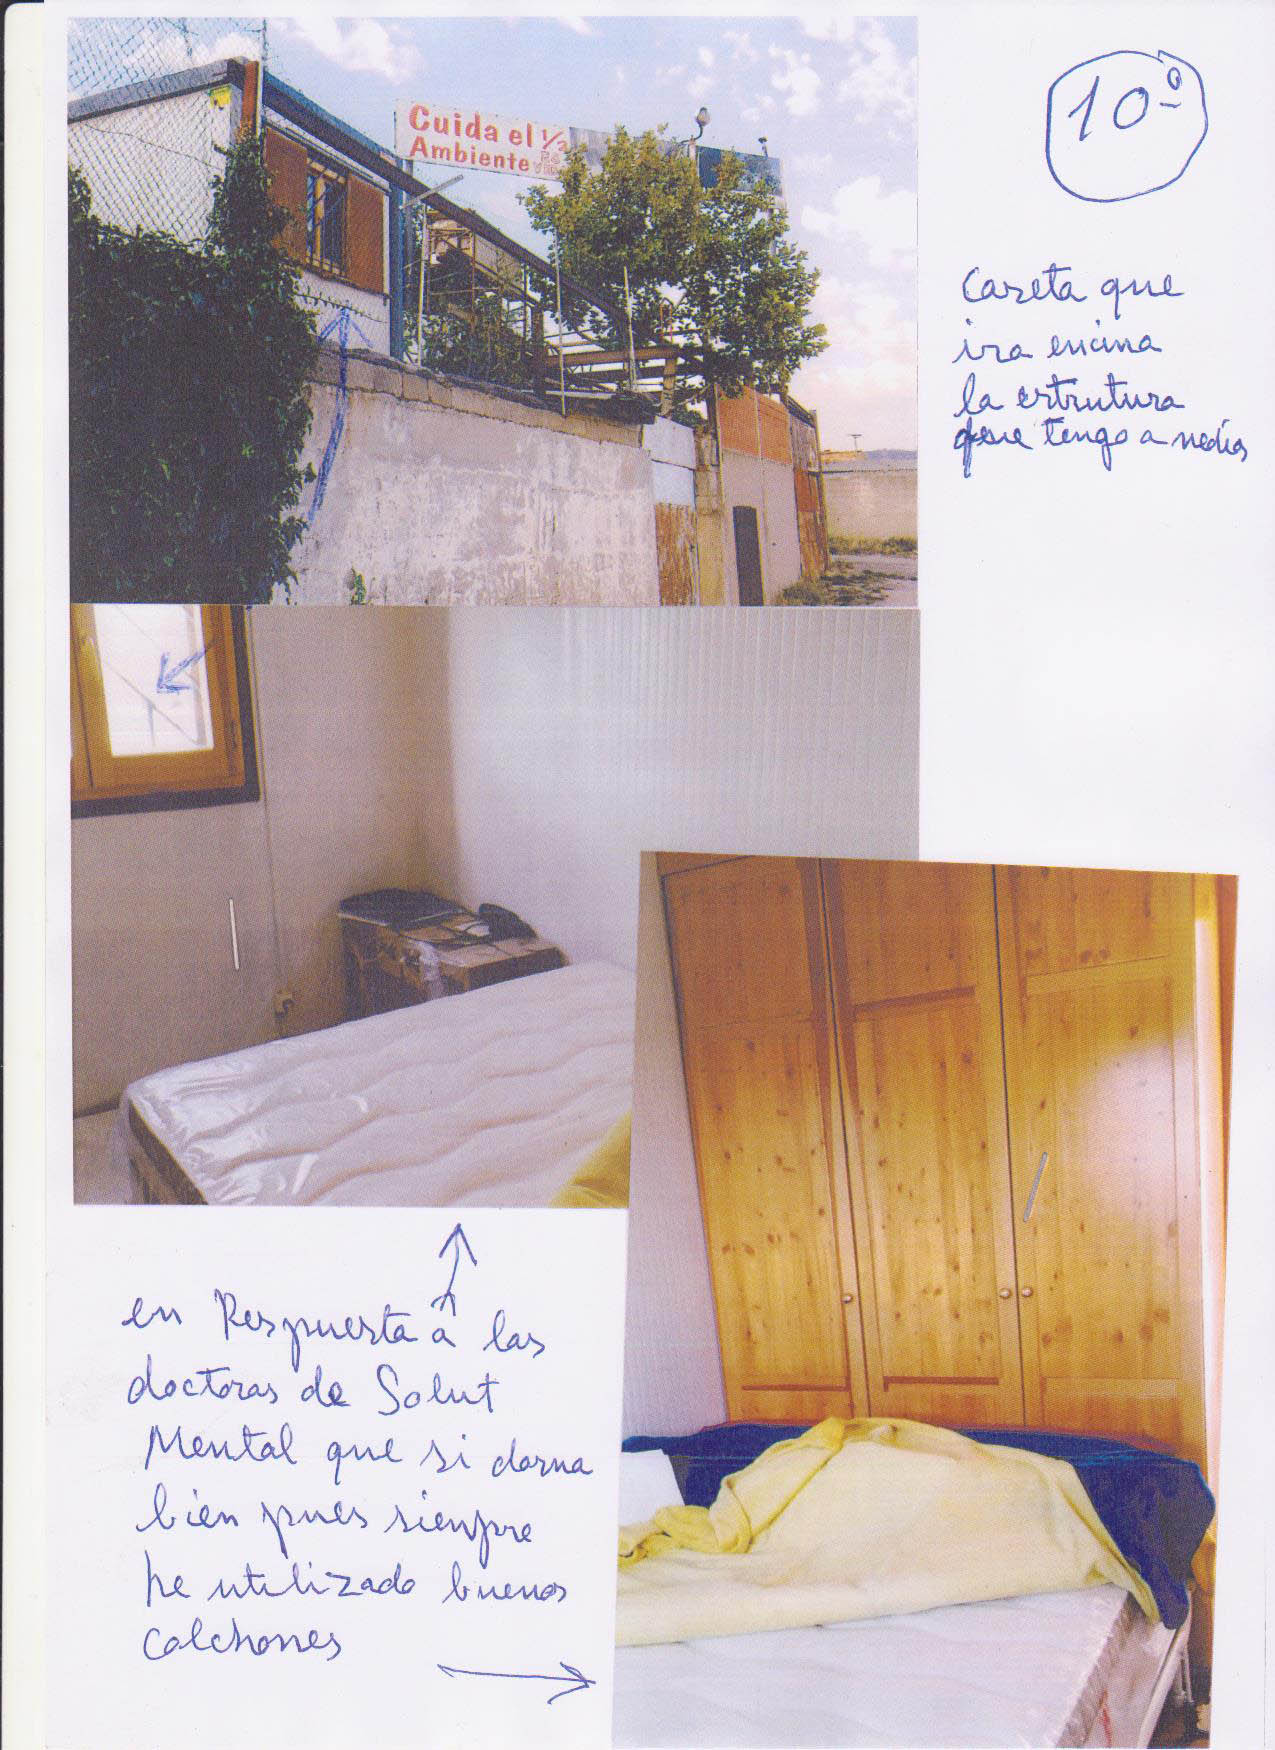 10º
Cuida el 1/2
Ambiente
Caseta que
ira encima
la estrutura
que tengo a medias
en Respuesta a las
doctoras de Salut
Mental que si dorma
bien pues siempre
he utilizado buenos
colchones